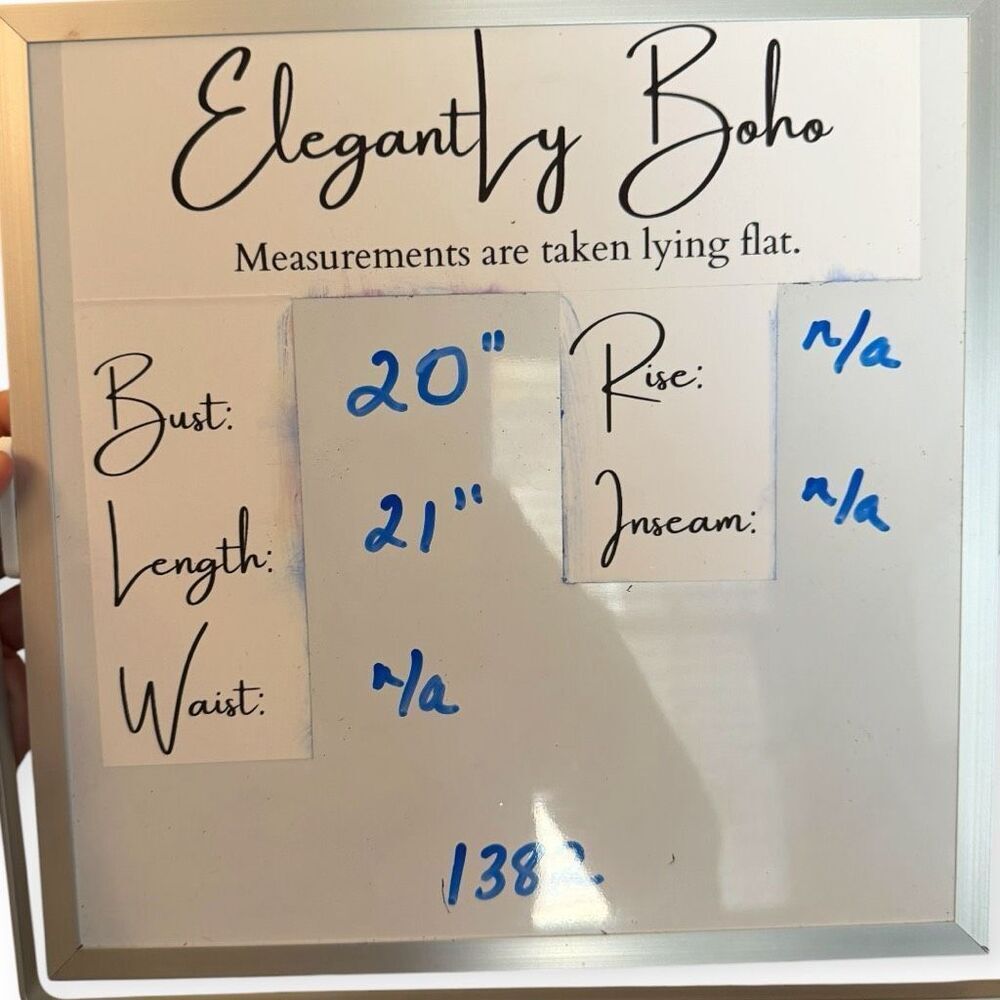 Elegantly Boho
Measurements are taken lying flat.
Bust: 20"
Length: 21"
Waist: n/a
Rise: n/a
Inseam: n/a
1382